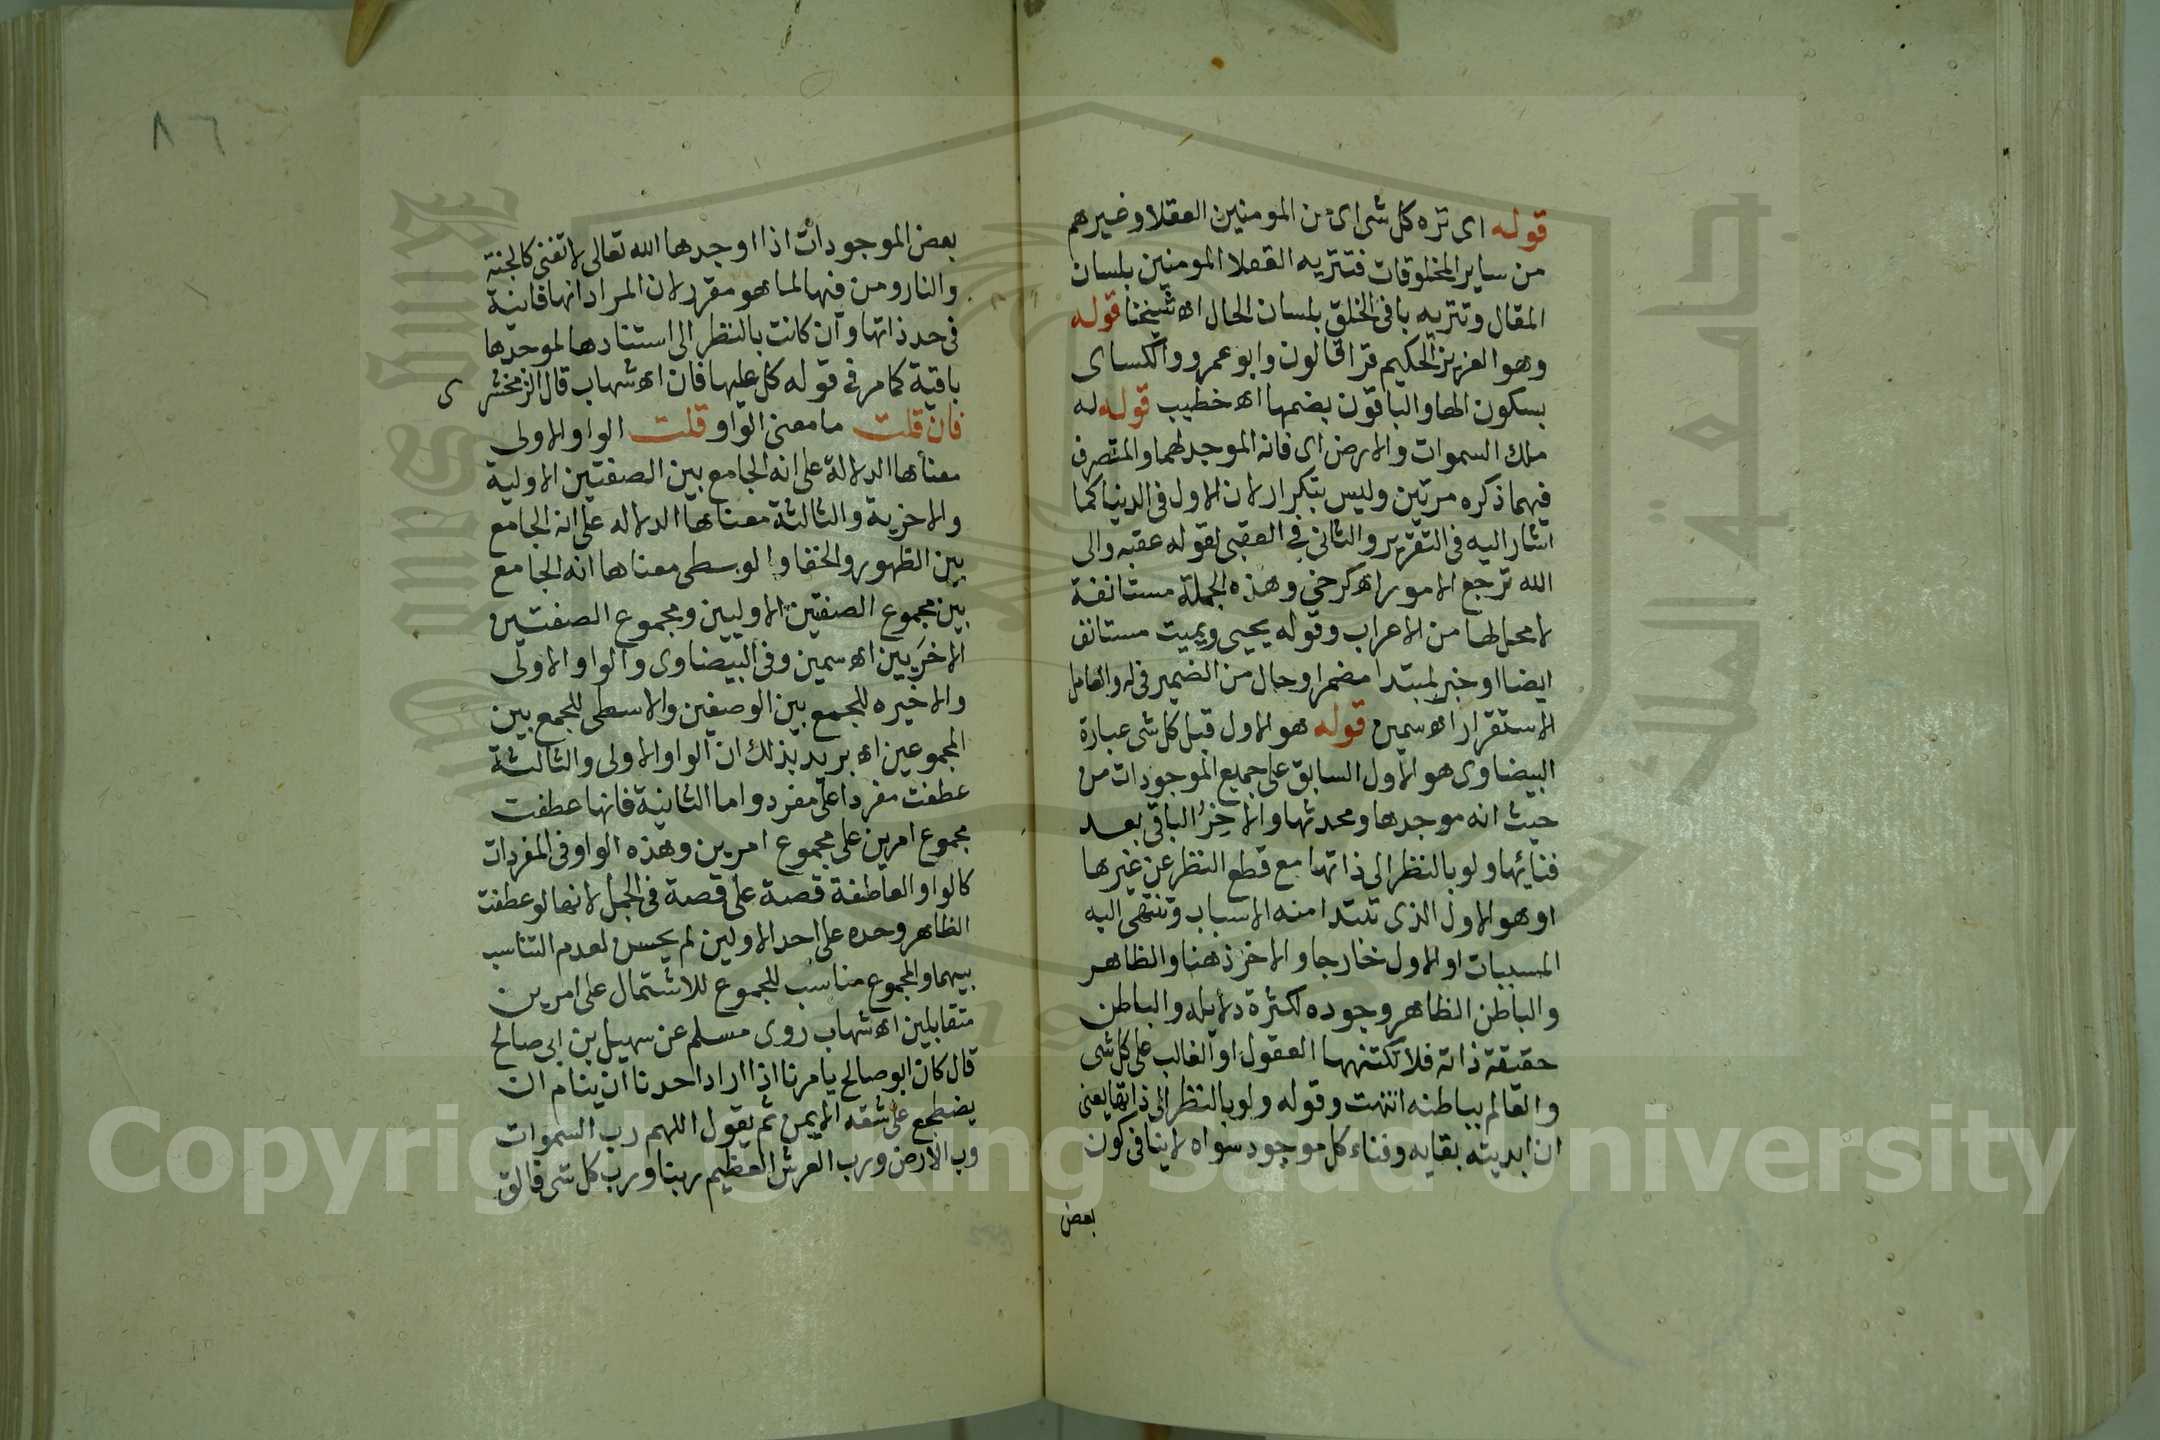 قوله اى نزه كل شى اى من المومنين العقلا وغيرهم
من ساير المخلوقات فتنزيه العقلا المومنين بلسان
المقال وتنزيه باقى الخلق بلسان الحال اه شيخنا قوله
وهو العزيز الحكيم قرا قالون وابو عمرو والكساى
بسكون الها والباقون بضمها اه خطيب قوله له
ملك السموات والارض اى فانه الموجد لهما والمتصرف
فيهما ذكره مرتين وليس بتكرار لان الاول فى الدنيا كما
اشار اليه فى التقرير والثانى فى العقبى لقوله عقبه والى
الله ترجع الامور اه كرخى وهذه الجملة مستانفة
لا محل لها من الاعراب وقوله يحيى ويميت مستانف
ايضا او خبر لمبتدا مضمر او حال من الضمير فى له والعامل
الاستقرار اه سمين قوله هو الاول قبل كل شى عبارة
البيضاوى هو الاول السابق على جميع الموجودات من
حيث انه موجدها ومحدثها والاخر الباقى بعد
فنائها ولو بالنظر الى ذاتها مع قطع النظر عن غيرها
او هو الاول الذى تبتدا منه الاسباب وتنتهى اليه
المسببات او الاول خارجا والاخر ذهنا والظاهر
والباطن الظاهر وجوده لكثرة دلايله والباطن
حقيقة ذاته فلا تكتنهها العقول او الغالب على كل شى
والعالم بباطنه انتهت وقوله ولو بالنظر الى ذاتها يعنى
ان ابديته بقايه وفناء كل موجود سواه لا ينافى كون
بعض
٨٦
بعض الموجودات اذا اوجدها الله تعالى لا تفنى كالجنة
والنار ومن فيهما لما هو مقرر لان المراد انها فانية
فى حد ذاتها وان كانت بالنظر الى استنادها لموجدها
باقية كما مر فى قوله كل من عليها فان اه شهاب قال الزمخشرى
فان قلت ما معنى الواو قلت الواو الاولى
معناها الدلالة على انه الجامع بين الصفتين الاولية
والاخرية والثالثة معناها الدلاله على انه الجامع
بين الظهور والخفا والوسطى معناها انه الجامع
بين مجموع الصفتين الاوليين ومجموع الصفتين
الاخريين اه سمين وفى البيضاوى والواو الاولى
والاخيره للجمع بين الوصفين والاسطى للجمع بين
المجموعين اه يريد بذلك ان الواو الاولى والثالثة
عطفت مفردا على مفرد واما الثانية فانها عطفت
مجموع امرين على مجموع امرين وهذه الواو فى المفردات
كالواو العاطفة قصة على قصة فى الجمل لانها لو عطفت
الظاهر وحده على احد الاولين لم يحسن لعدم التناسب
بينهما والمجموع مناسب للمجموع للاشتمال على امرين
متقابلين اه شهاب روى مسلم عن سهيل بن ابى صالح
قال كان ابو صالح يامرنا اذا اراد احدنا ان ينام ان
يضطجع على شقه الايمن ثم يقول اللهم رب السموات
ورب الارض ورب العرش العظيم ربنا ورب كل شى فالق
Copyright © King Saud University
جامعة الملك سعود
King Saud University
1957